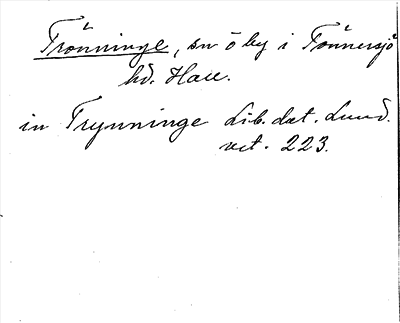 Trönninge, sn o by i Tönnersjö
hd. Hall.
in Trynninge Lib. dat. Lund.
vet. 223.